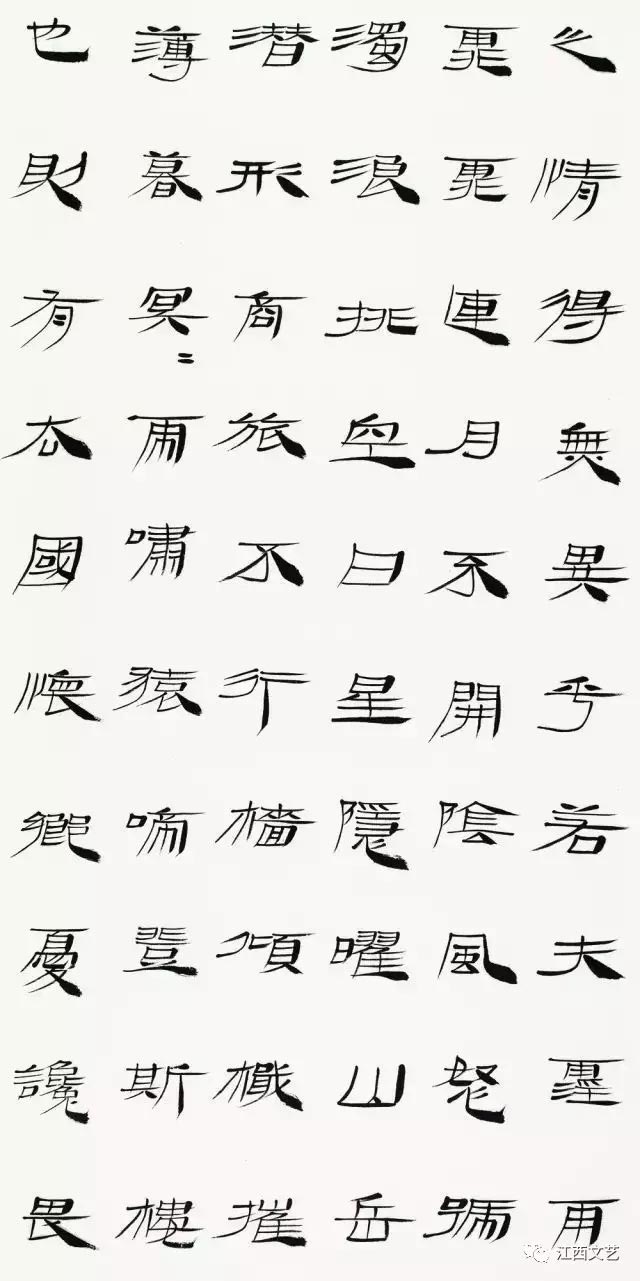 之情得無異乎若夫霪雨
霏霏連月不開陰風怒號
濁浪排空日星隱曜山岳
潜形商旅不行檣傾檝摧
薄暮冥〻虎嘯猿啼登斯樓
也則有去國懷鄉憂讒畏
江西文艺